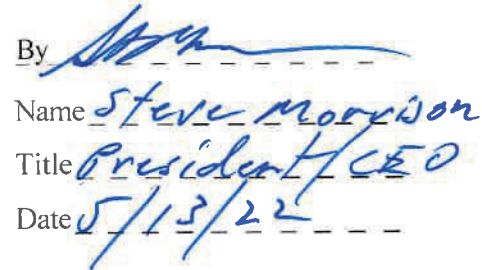 By
Name Steve Morrison
Title President/CEO
Date 5/13/22